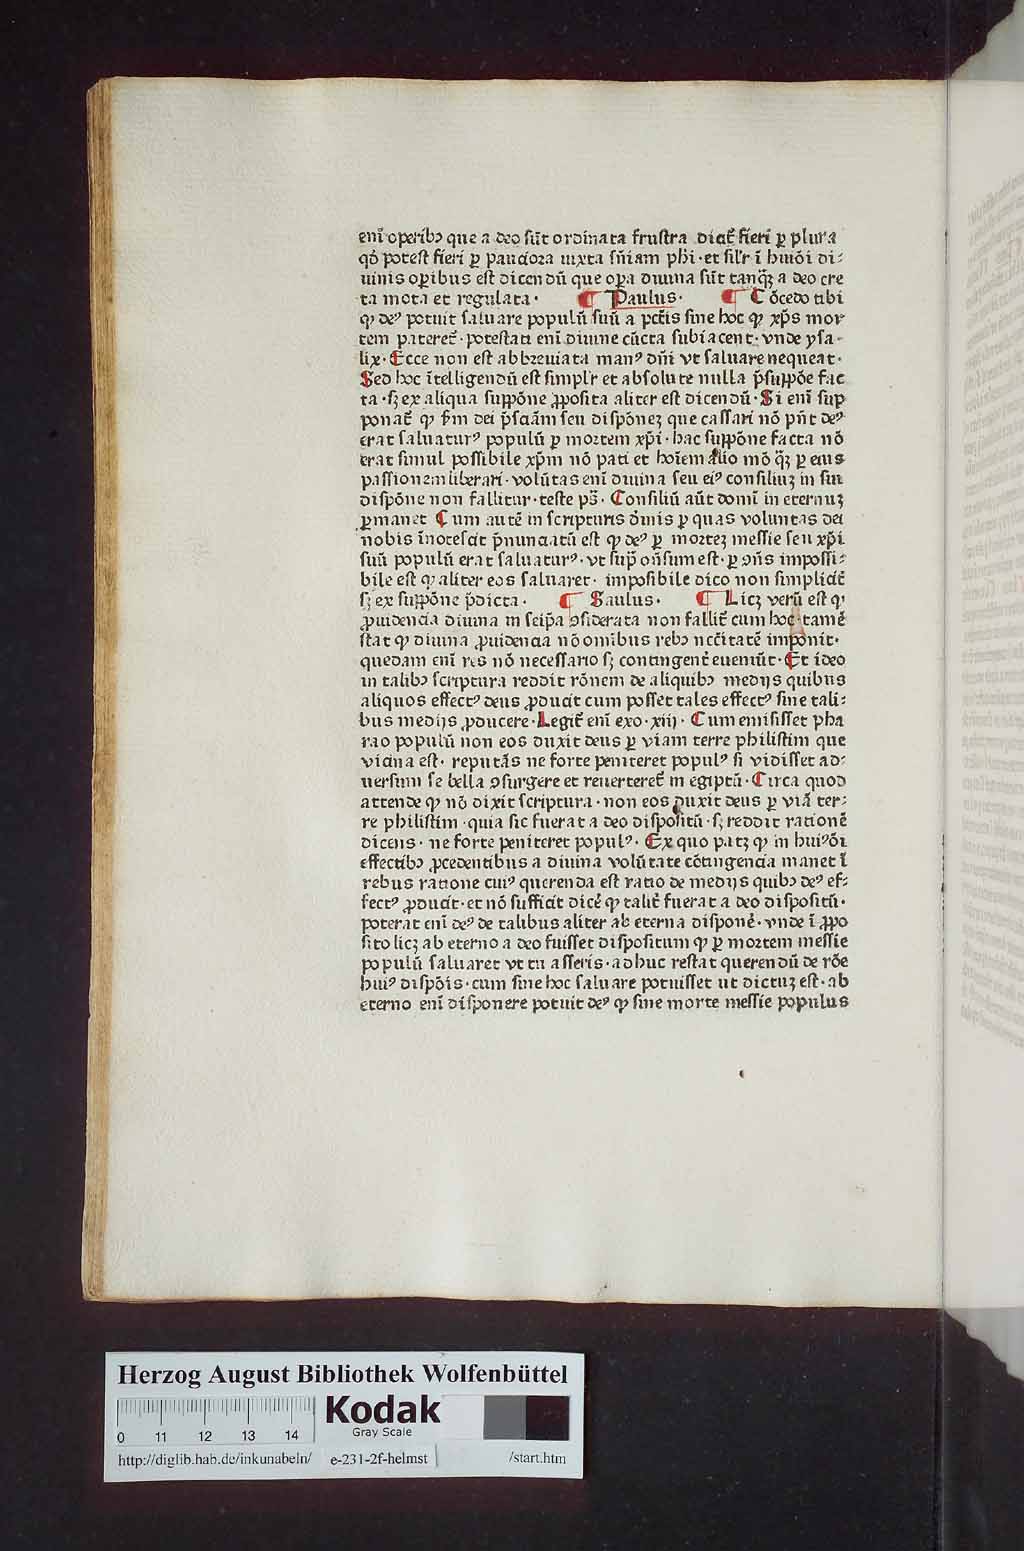 enī operibꝯ que a deo sūt ordinata frustra dicit̄ fieri ꝑ plura
qd̓ potest fieri ꝑ pauciora iuxta sn̄iam phi · et sil'r ī huiōi di:
uinis oꝑibus est dicendū que oꝑa diuina sūt tanq̄ȝ a deo cre
ta mota et regulata · ¶ Paulus · ¶ Cōcedo tibi
ꝙ deꝰ potuit saluare populū suū a pctīs sine hoc ꝙ xp̄s mor
tem pateret̄ · potestati enī diuine cūcta subiacent · vnde ysa
lix · Ecce non est abbreuiata manꝰ dn̄i vt saluare nequeat ·
Sed hoc ītelligendū est simpl'r et absolute nulla p̄suppōe fac
ta · sȝ ex aliqua suppōne ꝓposita aliter est dicendū · Si enī sup
ponat̄ ꝙ ẜm dei p̄sciām seu dispōneȝ que cassari nō pn̄t deꝰ
erat saluaturꝰ populū ꝑ mortem xp̄i · hac suppōne facta nō
erat simul possibile xp̄m nō pati et hoīem alio mō q̄ȝ ꝑ eius
passionem liberari · volūtas enī diuina seu eiꝰ consiliuȝ in sui
dispōne non fallitur · teste ps̄ · Consiliū aūt domī in eternuȝ
ꝑmanet Cum autē in scripturis d̄inis ꝑ quas voluntas dei
nobis īnotescit p̄nunciatū est ꝙ deꝰ ꝑ morteȝ messie seu xp̄i
suū populū erat saluaturꝰ · vt sup̄ on̄sum est · ꝑ ꝯn̄s impossi:
bile est ꝙ aliter eos saluaret · imposibile dico non simplicit̄
sȝ ex suppōne p̄dicta · ¶ Saulus · ¶ Licȝ verū est ꝙ
ꝓuidencia diuina in seip̄a ꝯsiderata non fallit̄ cum hoc tamē
stat ꝙ diuina ꝓuidencia nō om̄ibus rebꝯ nccītatē imponit ·
quedam enī res nō necessario sȝ contingent̄ eueniūt · Et ideo
in talibꝯ scriptura reddit rōnem de aliquibꝯ medijs quibus
aliquos effectꝰ deus ꝓducit cum posset tales effectꝰ sine tali:
bus medijs ꝓducere · Legit̄ enī exo · xiij · Cum emisisset pha
rao populū non eos duxit deus ꝑ viam terre philistim que
vicina est · reputās ne forte peniteret populꝰ si vidisset ad:
uersum se bella ꝯsurgere et reuerteret̄ in egiptū · Circa quod
attende ꝙ nō dixit scriptura · non eos duxit deus ꝑ viā ter:
re philistim · quia sic fuerat a deo dispositū · sȝ reddit rationē
dicens · ne forte peniteret populꝰ · Ex quo patȝ ꝙ in huiꝰōi
effectibꝯ ꝓcedentibus a diuina volūtate cōtingencia manet ī
rebus ratione cuiꝰ querenda est ratio de medijs quibꝯ deꝰ ef:
fectꝰ ꝓducit · et nō sufficit dicē ꝙ talit̄ fuerat a deo dispositū ·
poterat enī deꝰ de talibus aliter ab eterna disponē · vnde ī ꝓpo
sito licȝ ab eterno a deo fuisset dispositum ꝙ ꝑ mortem messie
populū saluaret vt tu asseris · adhuc restat querendū de rōe
huiꝰ dispōis · cum sine hoc saluare potuisset ut dictuȝ est · ab
eterno enī disponere potuit deꝰ ꝙ sine morte messie populus
Herzog August Bibliothek Wolfenbüttel
Kodak
Gray Scale
0 11 12 13 14
http://diglib.hab.de/inkunabeln/ e-231-2f-helmst /start.htm